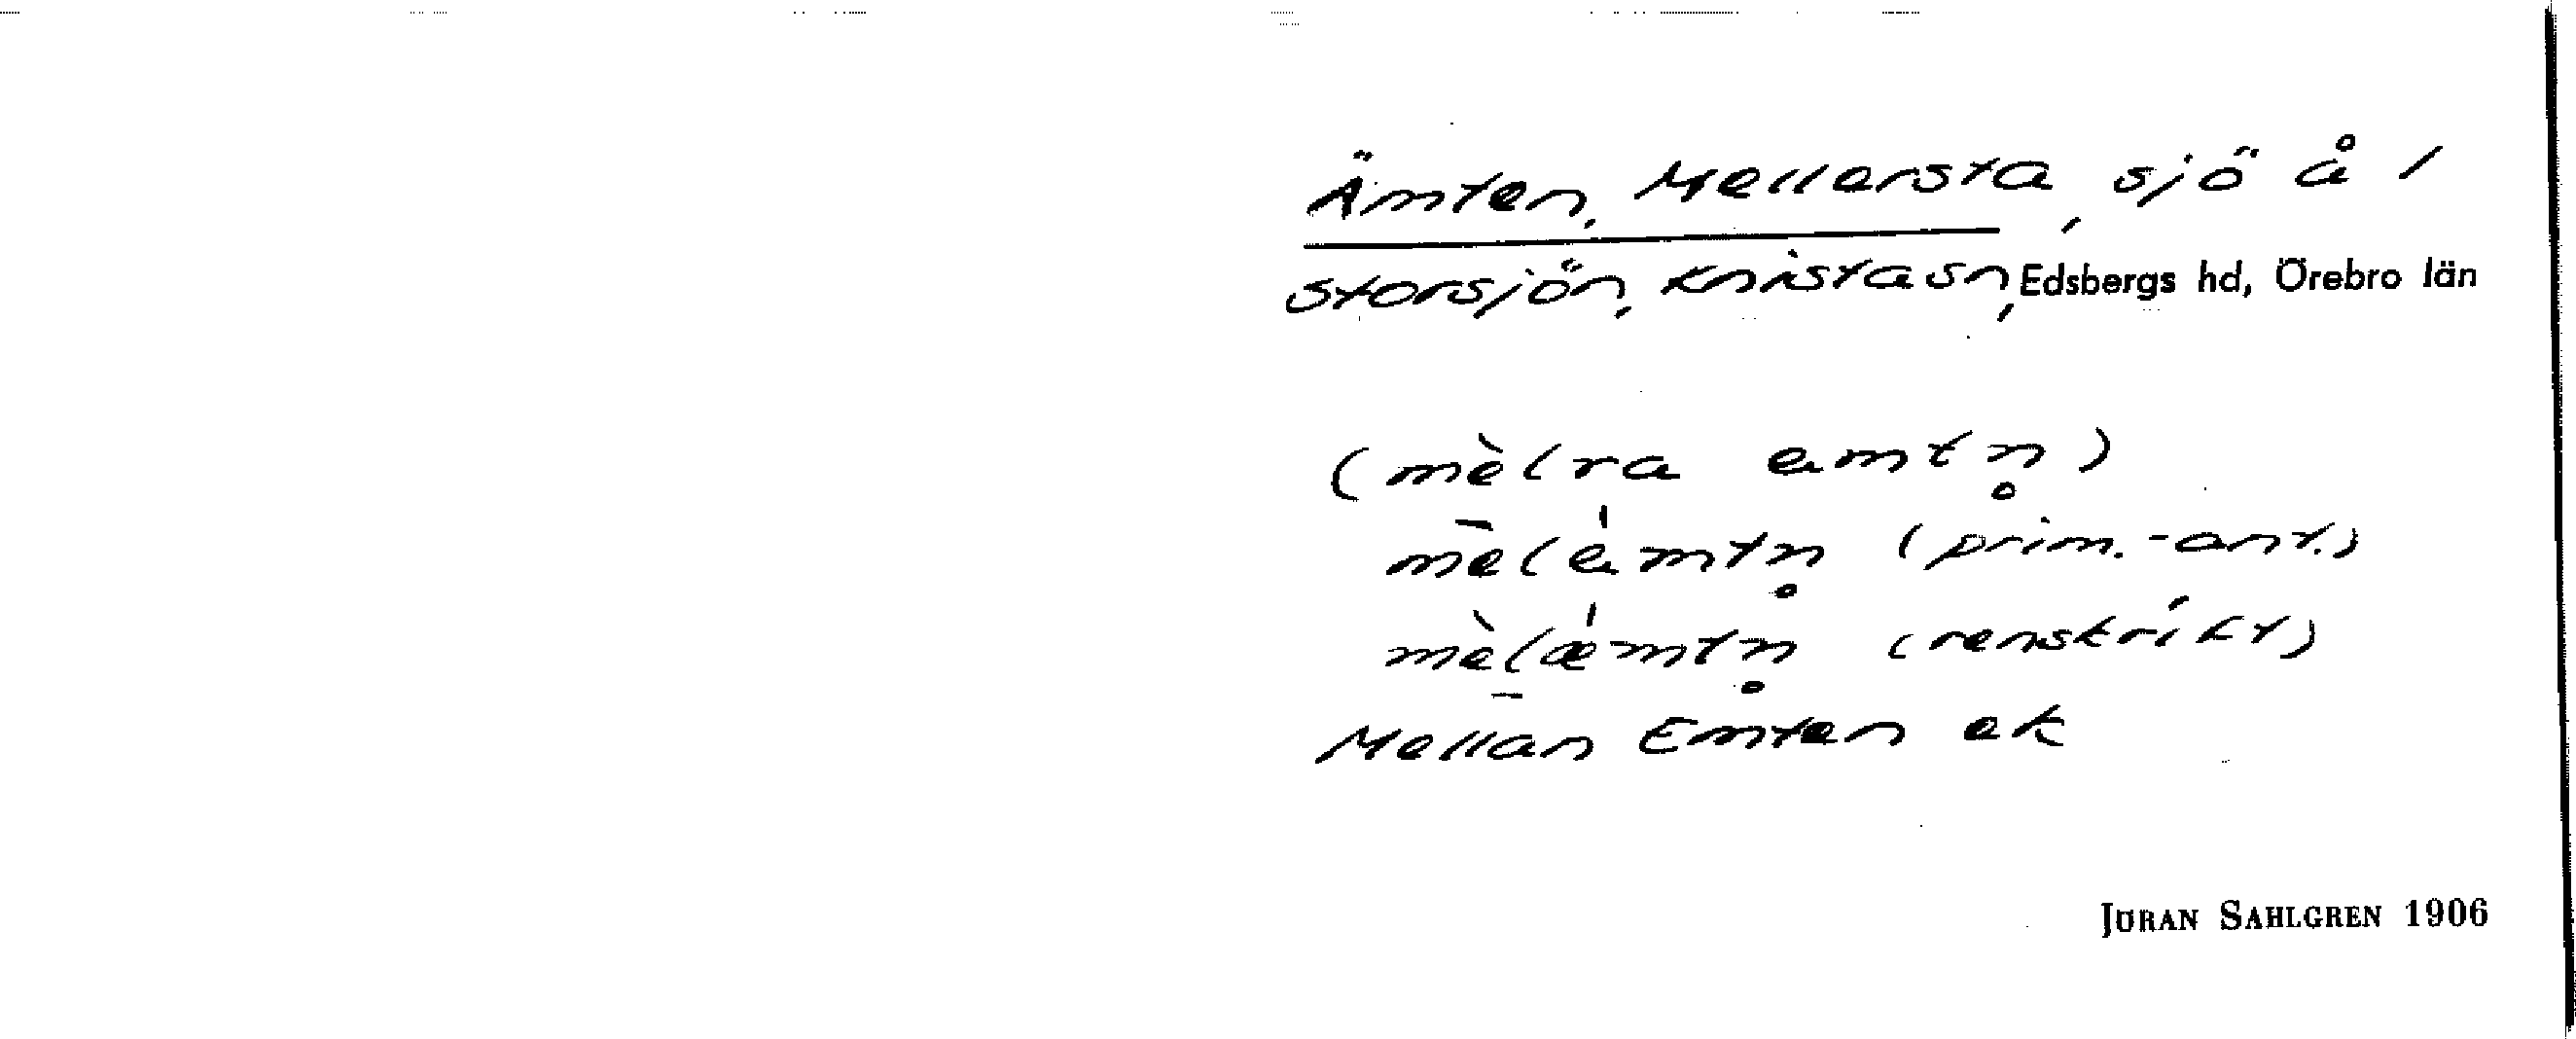 Ämten, Mellersta, sjö å /
Storsjön, Knista sn, Edsbergs hd, Örebro län
(mèlra emtn̥)
mèlémtn̥ (prim.-ant.)
mèlǽmtn̥ (renskrift)
Mellan Emten ek
JÖRAN SAHLGREN 1906